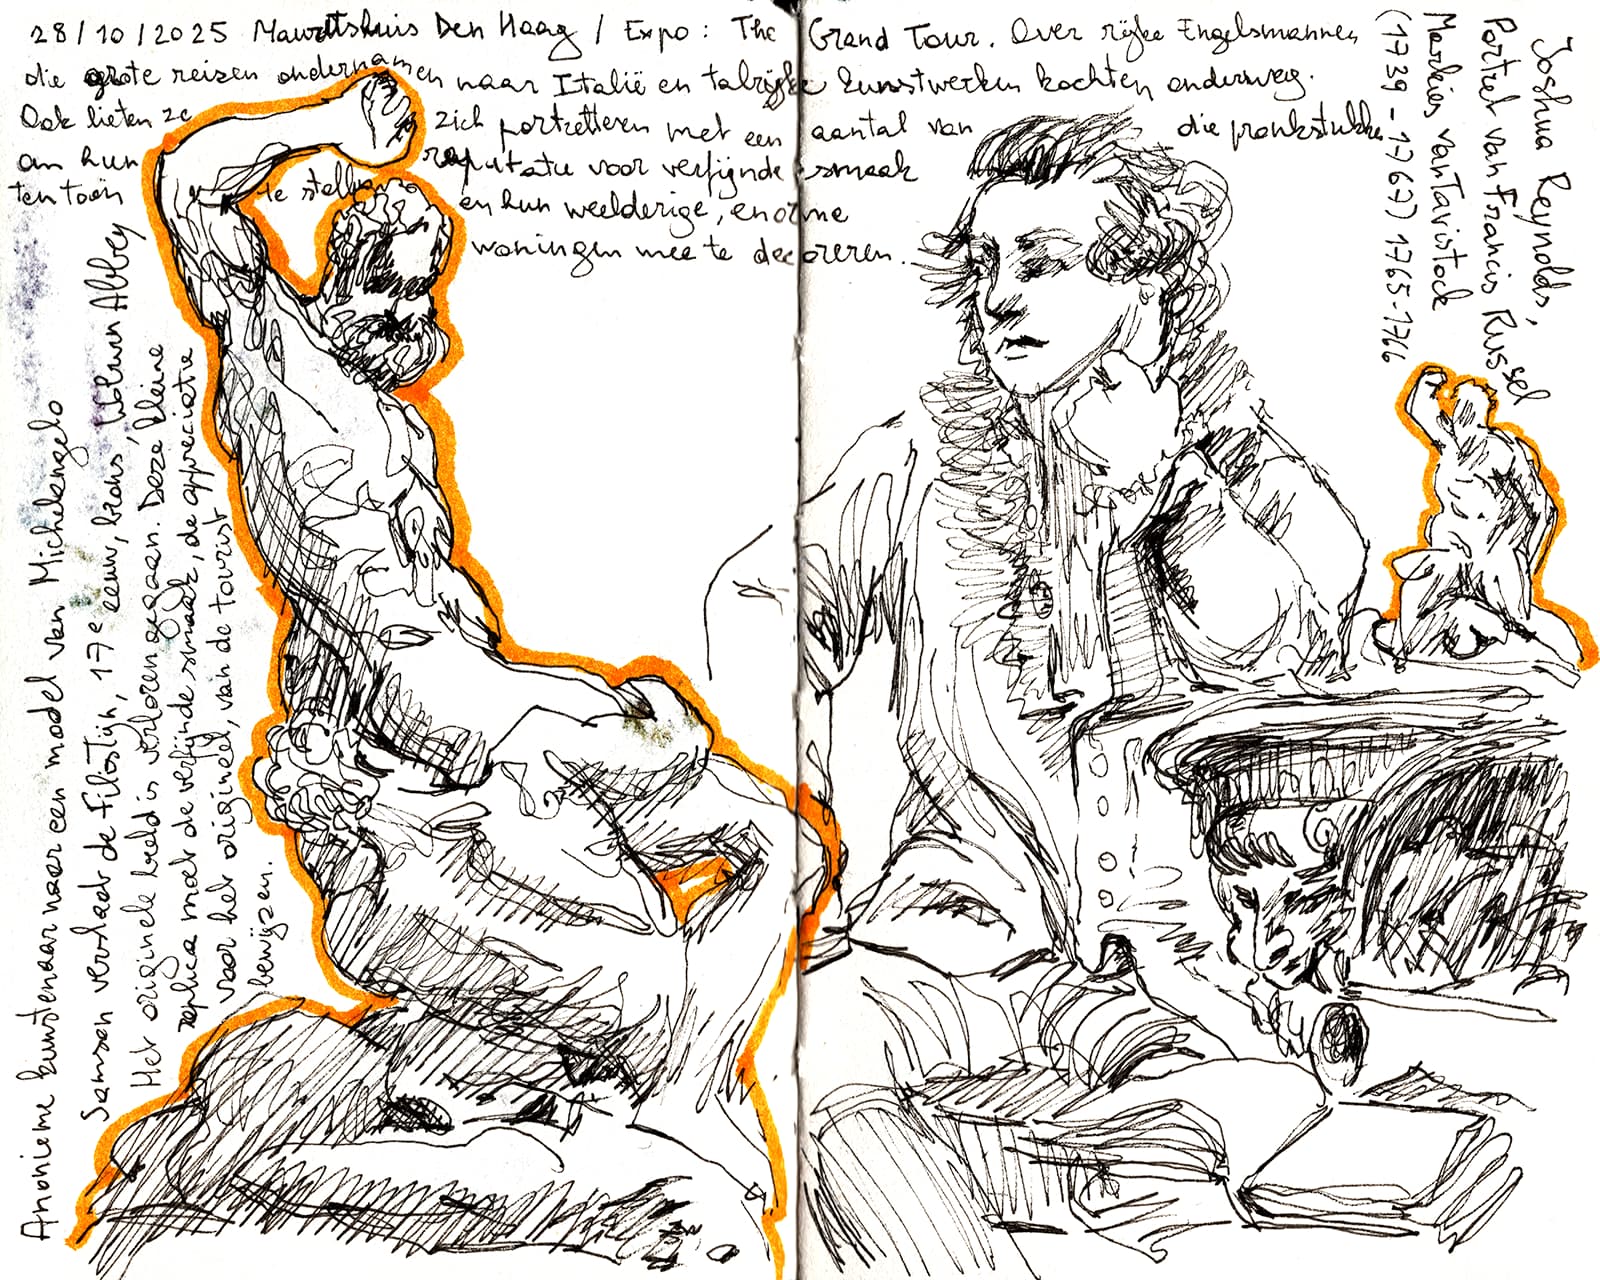 28/10/2025 Mauritshuis Den Haag / Expo: The Grand Tour. Over rijke Engelsmannen
die grote reizen ondernamen naar Italië en talrijke kunstwerken kochten onderweg.
Ook lieten ze zich portretteren met een aantal van die pronkstukken
om hun reputatie voor verfijnde smaak
ten toon te stellen en hun weelderige, enorme
woningen mee te decoreren.
Joshua Reynolds,
Portret van Francis Russel
Markies van Tavistock
(1739-1767) 1765-1766
Anonieme kunstenaar naar een model van Michelangelo
Samson verslaat de Filistijn, 17e eeuw, brons, Woburn Abbey
Het originele beeld is verloren gegaan. Deze kleine
replica moet de verfijnde smaak, de appreciatie
voor het origineel, van de tourist
bewijzen.